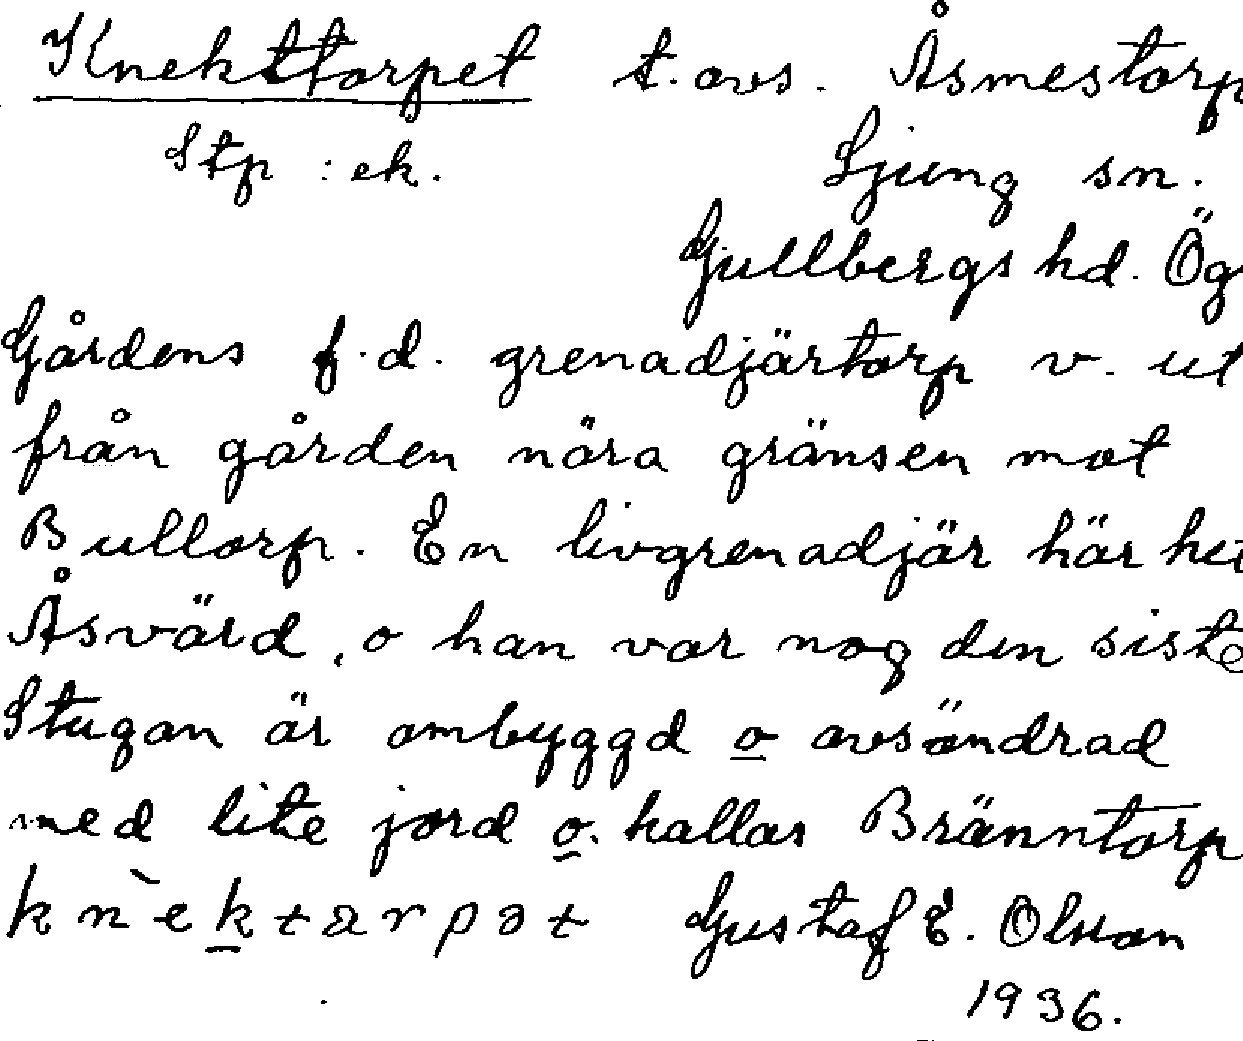 Knekttorpet t. avs. Åsmestorp
Stp : ek. Ljung sn.
Gullbergs hd. Ög
Gårdens f.d. grenadjärtorp v. ut
från gården nära gränsen mot
Bulltorp. En livgrenadjär här het
Åsvärd, o han var nog den siste
Stugan är ombyggd o avsöndrad
med lite jord o. kallas Bränntorp
Gustaf E. Olsson
1936.